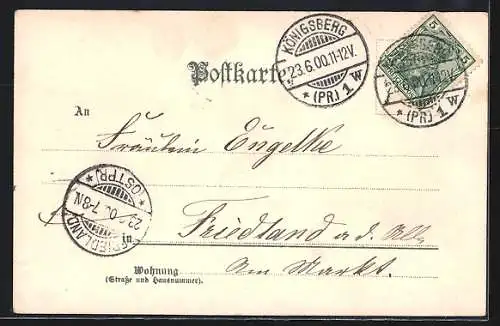 KÖNIGSBERG
23.6.00.11-12V.
* (PR.) 1 w
5 5
Postkarte
(PR.) 1 w
An
Fräulein Engelke
FRIEDLAND
7-8N
* (OSTPR.) *
in Friedland a. d. Alle
Am Markt.
Wohnung
(Straße und Hausnummer).